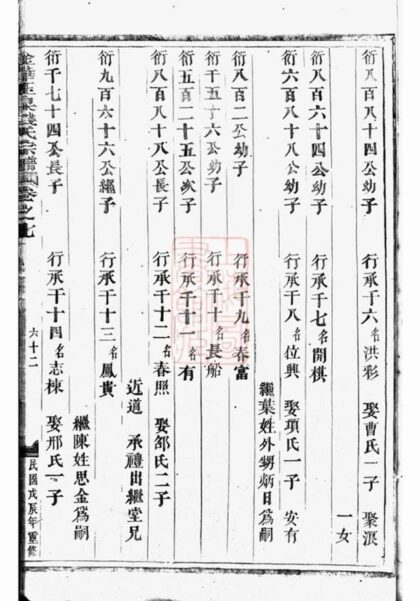 衍八百八十四公幼子 行承千六名洪彩 娶曹氏一子 聚泿
一女
衍八百六十四公幼子 行承千七名開棋
衍六百八十八公幼子 行承千八名位興 娶項氏一子 安有
繼葉姓外甥炳日爲嗣
衍八百二公幼子 行承千九名春富
衍千五十六公幼子 行承千十名長船
衍五百二十五公次子 行承千十一名有
衍八百八十八公長子 行承千十二名春照 娶邹氏二子
近道 承禮出繼堂兄
衍九百六十六公繼子 行承千十三名鳳貴
繼陳姓思金爲嗣
衍千七十四公長子 行承千十四名志棟 娶邢氏一子
氏宗譜 卷之七 六十二 民國戊辰年重修